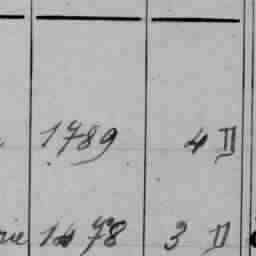 1789 4 II
1478 3 II